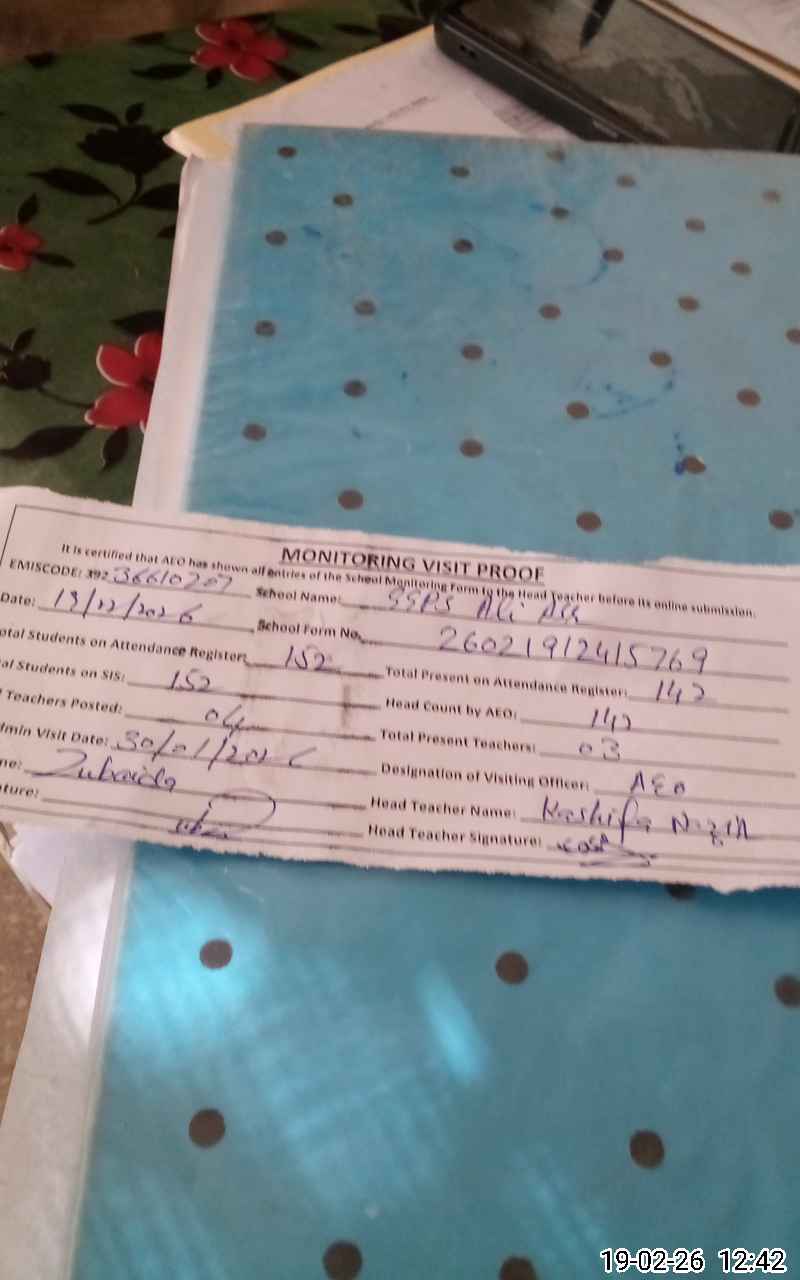 MONITORING VISIT PROOF
It is certified that AEO has shown all entries of the School Monitoring Form to the Head Teacher before its online submission.
EMISCODE: 392 36610207 School Name: GGPS Ali
Date: 19/12/2026 School Form No. 26021912415769
otal Students on Attendance Register: 152 Total Present on Attendance Register: 142
al Students on SIS: 152 Head Count by AEO: 142
Teachers Posted: 04 Total Present Teachers: 03
dmin Visit Date: 30/01/2026 Designation of Visiting Officer: AEO
ne: Zubaida Head Teacher Name: Kashifa
ture: Head Teacher Signature:
19-02-26 12:42